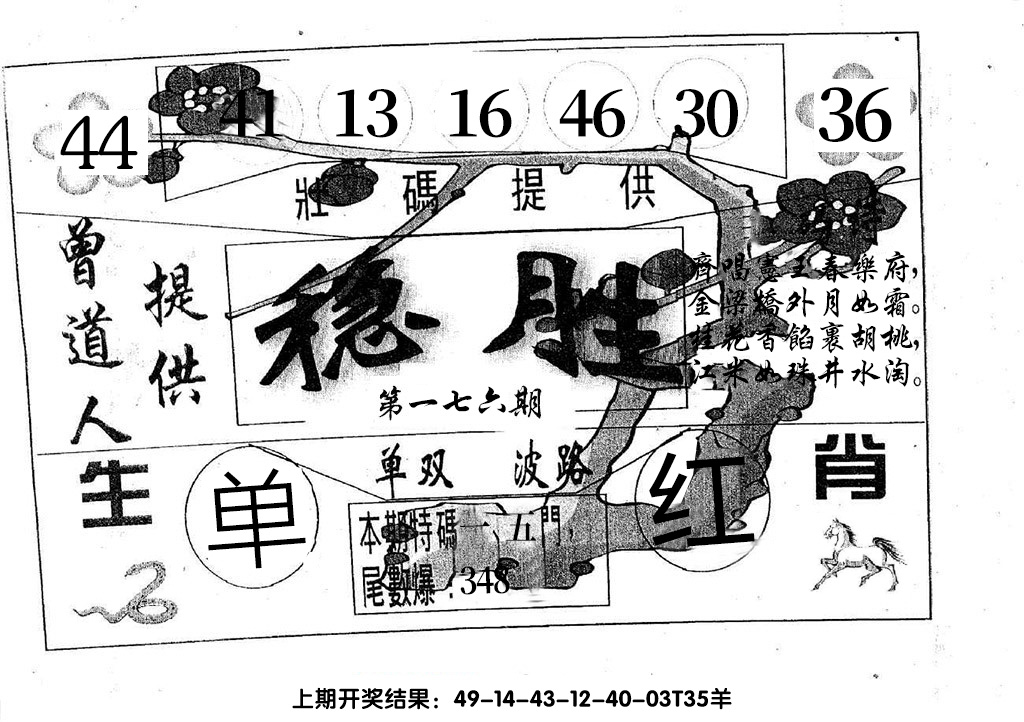 44 41 13 16 46 30 36
壯碼提供
曾道人
提供
特
穩胜
第一七六期
齊唱憲王春樂府，
金梁橋外月如霜。
桂花香餡裹胡桃，
江米如珠井水淘。
单双 波路
生肖
单
红
本期特碼一、五門，
尾數爆:348
上期开奖结果：49-14-43-12-40-03T35羊